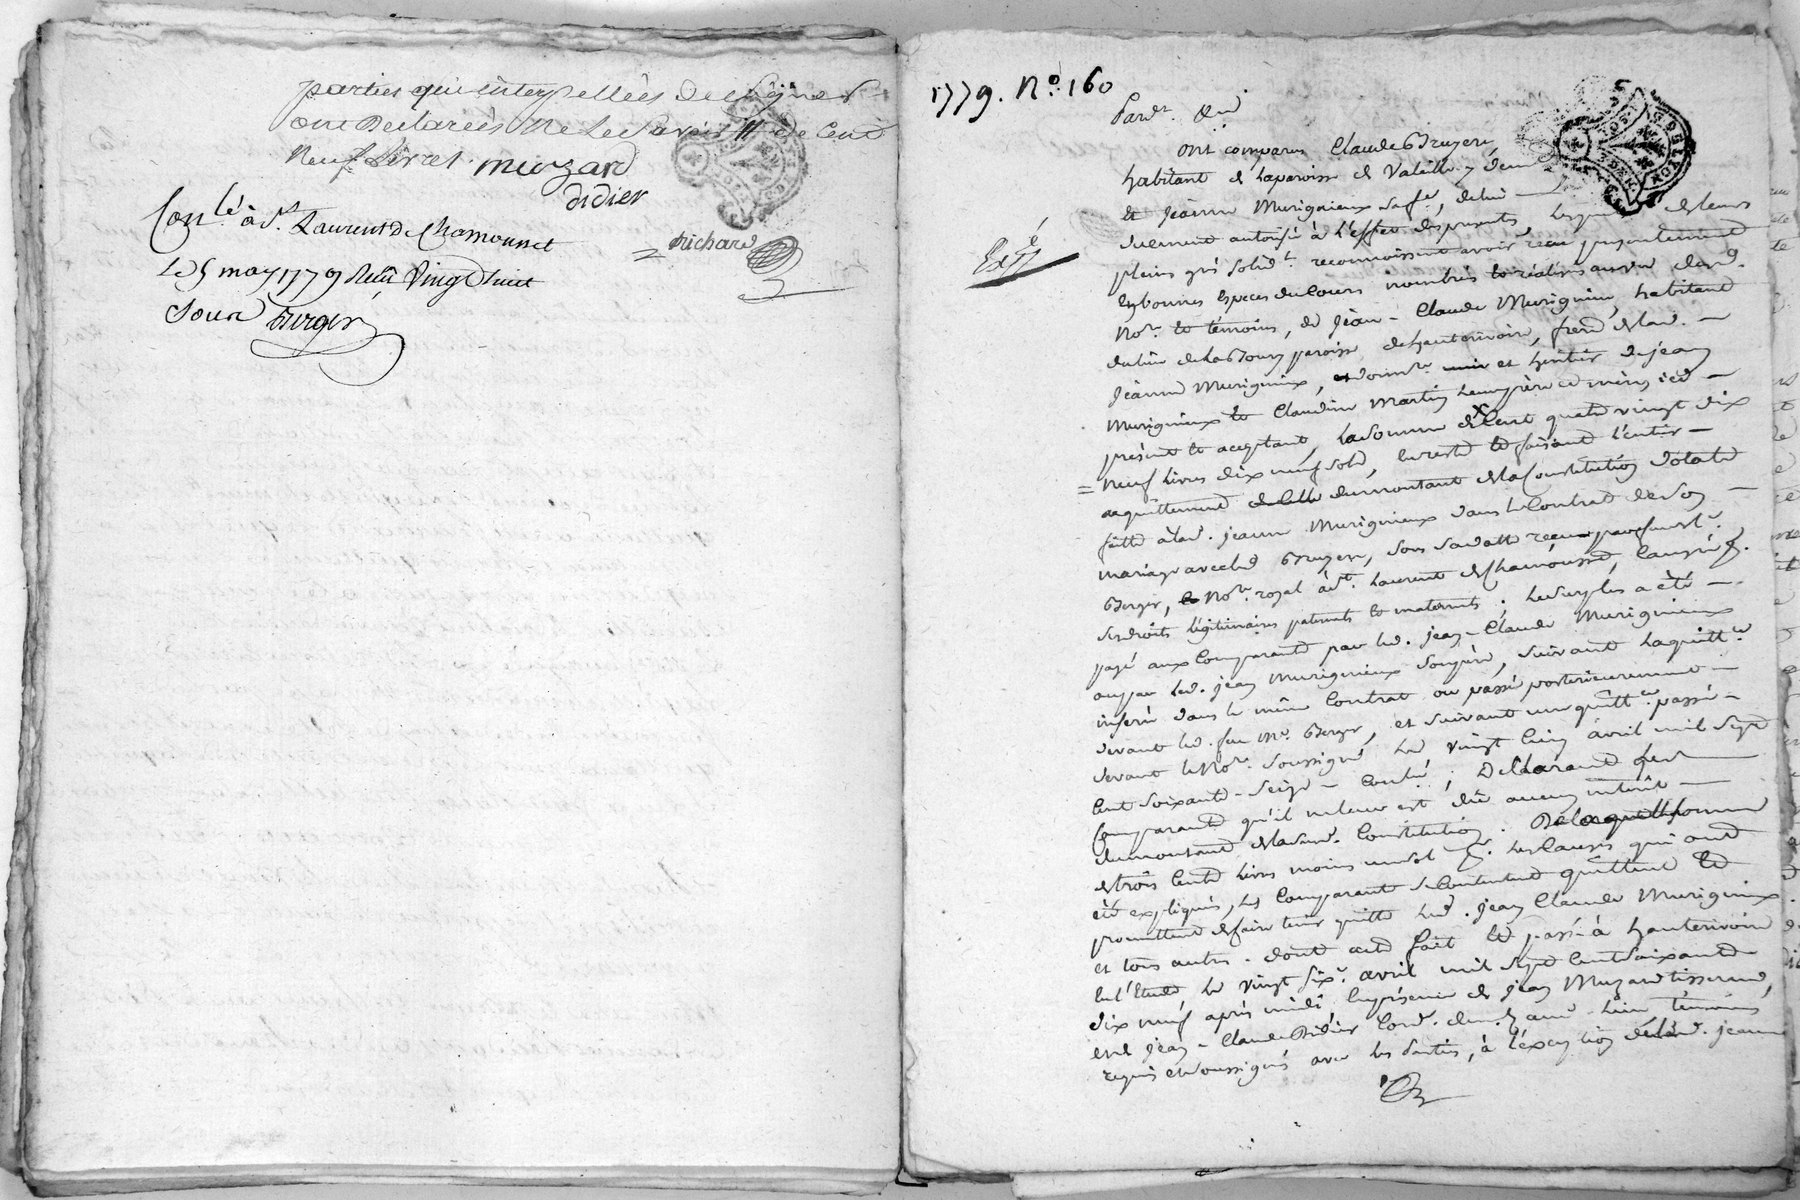 parties qui interpellées de signer
ont Declareés ne le Savoir # de cent
neuf Livres. muzard
didier
richard
Con.lé à St. Laurent De Chamousset
Le 5 may 1779 Reçu Vingt huit
Sous Burger
1779. N.o 160
Pard.t
ont comparus Claude Bruyere,
habitant de la paroisse de Valeille,
et Jeanne Murigneux sa fe, de lui
duement autorisée à l'effet des présents
plein gré solid.t reconnoissent avoir recu presentement
en bonnes Especes du Cours nombrés et réalisés au vu desd.
No.re et témoins, de Jean-Claude Murigneux, habitant
du lieu de la Bourg paroisse de hauterivoire, frere de lad.
Jeanne Murigneux, et heritier de jean
Murigneux et Claudine Martin leurs père et mère, icy
présent et acceptant, La Somme de Cent quatre vingt dix
Neuf Livres dix neuf sols, en reste et faisant l'entier
acquittement du montant de la Constitution dotale
faitte à lad. jeanne Murigneux dans le Contrat de son
mariage avec led. Bruyere, sous sa datte recu par feu M.e
Berger, No.re royal à St. Laurent de Chamousset,
ses droits légitimaires paternels et maternels. Le surplus a été
payé aux Comparants par led. jean-Claude Murigneux
ou par led. jean Murigneux son père, suivant la quitt.ce
inserée dans le même Contrat ou passé posterieurement
devant led. feu M.e Berger, et suivant une quitt.ce passé
devant le No.re soussigné le vingt cinq avril mil Sept
Cent Soixante-Seize Conlé; Declarant les
Comparants qu'il ne leur est dû aucun intérêt
du montant de lad. Constitution. De laquelle somme
de trois Cents livres moins un sol les Causes qui ont
été expliqués, les Comparants se Contentent quittent et
promettent de faire tenir quitte led. jean Claude Murigneux
et tous autres. dont acte fait et passé à hauterivoire
en l'Etude le vingt six.e avril mil Sept Cent Soixante
dix neuf après midi En présence de jean Muzard tisserand,
et de Jean-Claude Didier Cord. témoins
requis et soussignés avec les parties, à l'éxception de lad. jeanne